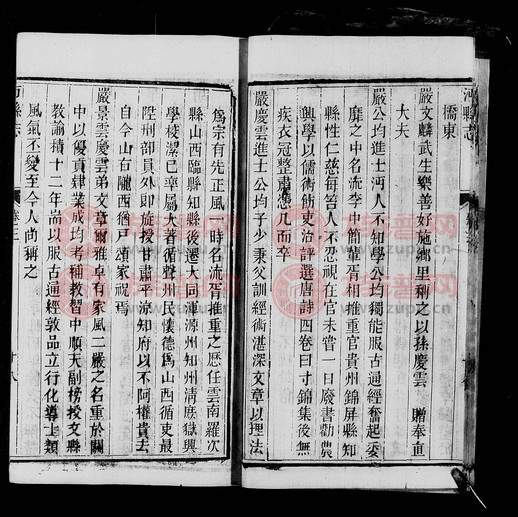 沔縣志
橋東
嚴文麟武生樂善好施鄉里稱之以孫慶雲 贈奉直
大夫
嚴公均進士沔人不知學公均獨能服古通經奮起委
靡之中名流李中簡輩胥相推重官貴州錦屏縣知
縣性仁慈每笞人不忍視在官未嘗一日廢書勸農
興學以儒術飾吏治評選唐詩四卷曰寸錦集後無
疾衣冠整肅憑几而卒
嚴慶雲進士公均子少秉父訓經術湛深文章以理法
為宗有先正風一時名流胥推重之歷任雲南羅次
縣山西臨縣知縣後遷大同渾源州知州清庶獄興
學校潔己率屬大著循聲州民懷德為山西循吏最
陞刑部員外即旋授甘肅平涼知府以不阿權貴去
自今山右隴西猶尸頌家祝焉
嚴景雲慶雲弟文章爾雅卓有家風二嚴之名重於關
中以優貢肄業成均考補教習中順天副榜授文縣
教諭積十二年耑以服古通經敦品立行化導士類
風氣丕變至今人尚稱之
沔縣志
卷三